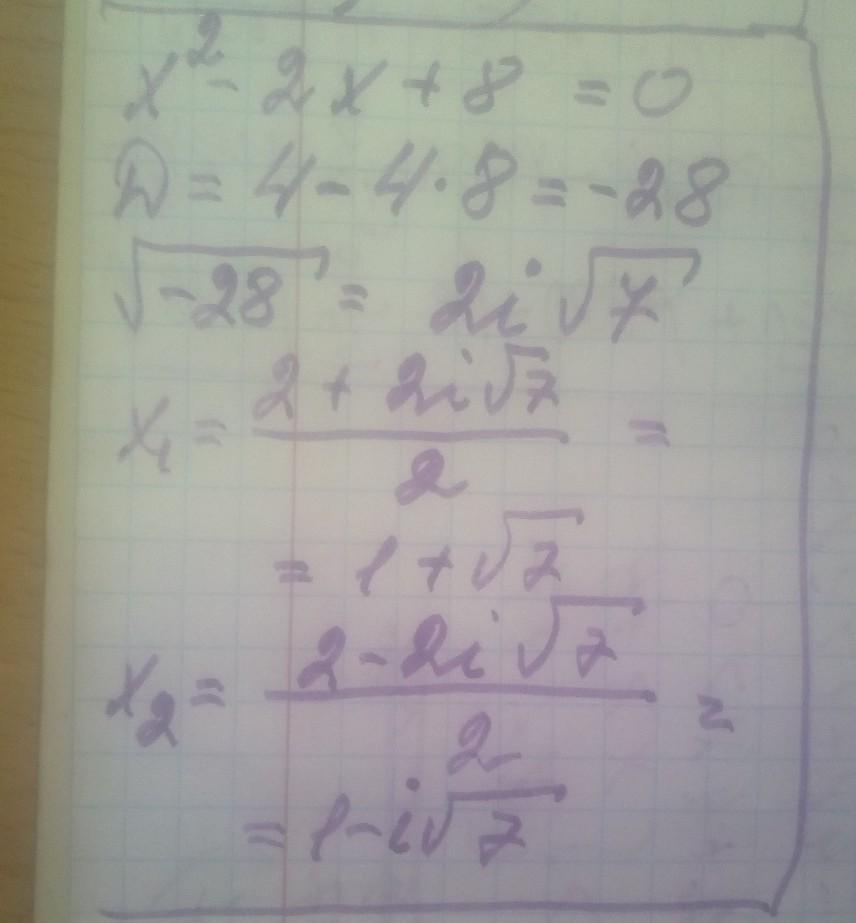 x² - 2x + 8 = 0
D = 4 - 4·8 = -28
√-28 = 2i√7
x₁ = (2 + 2i√7)/2 =
= 1 + √7
x₂ = (2 - 2i√7)/2 =
= 1 - i√7